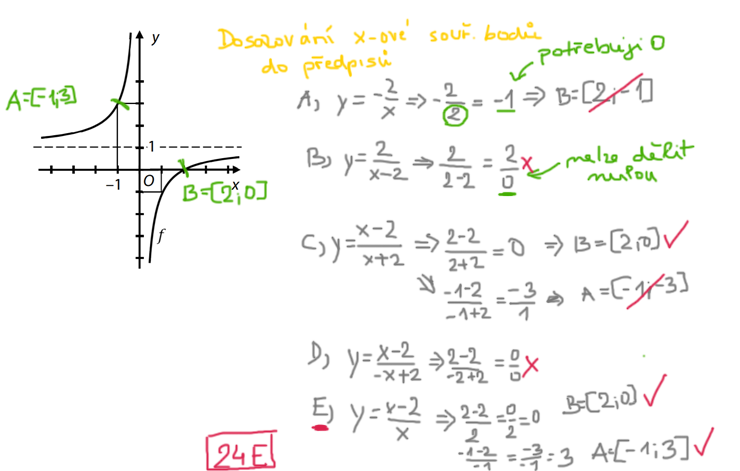 Dosazování x-ové souř. bodů
do předpisů
potřebuji 0
y
A=[-1;3]
1
-1
O
x
B=[2;0]
f
A) y = -2/x ⇒ -2/2 = -1 ⇒ B=[2;-1]
B) y = 2/(x-2) ⇒ 2/(2-2) = 2/0 x
nelze dělit
nulou
C) y = (x-2)/(x+2) ⇒ (2-2)/(2+2) = 0 ⇒ B=[2;0] ✓
⇘ (-1-2)/(-1+2) = -3/1 ⇒ A=[-1;-3]
D) y = (x-2)/(-x+2) ⇒ (2-2)/(-2+2) = 0/0 x
E) y = (x-2)/x ⇒ (2-2)/2 = 0/2 = 0 B=[2;0] ✓
(-1-2)/-1 = -3/-1 = 3 A=[-1;3] ✓
24E